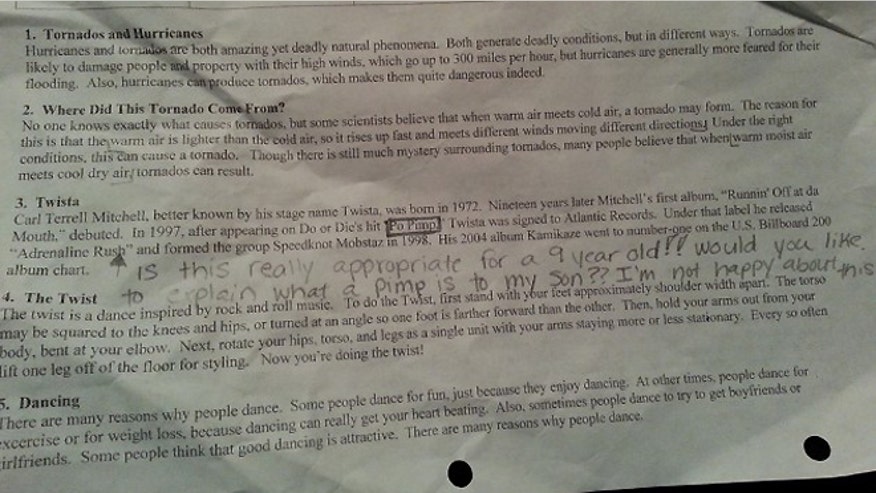 1. Tornados and Hurricanes
Hurricanes and tornados are both amazing yet deadly natural phenomena. Both generate deadly conditions, but in different ways. Tornados are
likely to damage people and property with their high winds, which go up to 300 miles per hour, but hurricanes are generally more feared for their
flooding. Also, hurricanes can produce tornados, which makes them quite dangerous indeed.
2. Where Did This Tornado Come From?
No one knows exactly what causes tornados, but some scientists believe that when warm air meets cold air, a tornado may form. The reason for
this is that the warm air is lighter than the cold air, so it rises up fast and meets different winds moving different directions. Under the right
conditions, this can cause a tornado. Though there is still much mystery surrounding tornados, many people believe that when warm moist air
meets cool dry air, tornados can result.
3. Twista
Carl Terrell Mitchell, better known by his stage name Twista, was born in 1972. Nineteen years later Mitchell's first album, "Runnin' Off at da
Mouth," debuted. In 1997, after appearing on Do or Die's hit "Po Pimp," Twista was signed to Atlantic Records. Under that label he released
"Adrenaline Rush" and formed the group Speedknot Mobstaz in 1998. His 2004 album Kamikaze went to number-one on the U.S. Billboard 200
album chart.
Is this really appropriate for a 9 year old!! would you like
to explain what a pimp is to my son?? I'm not happy about this
4. The Twist
The twist is a dance inspired by rock and roll music. To do the Twist, first stand with your feet approximately shoulder width apart. The torso
may be squared to the knees and hips, or turned at an angle so one foot is farther forward than the other. Then, hold your arms out from your
body, bent at your elbow. Next, rotate your hips, torso, and legs as a single unit with your arms staying more or less stationary. Every so often
lift one leg off of the floor for styling. Now you're doing the twist!
5. Dancing
There are many reasons why people dance. Some people dance for fun, just because they enjoy dancing. At other times, people dance for
excercise or for weight loss, because dancing can really get your heart beating. Also, sometimes people dance to try to get boyfriends or
girlfriends. Some people think that good dancing is attractive. There are many reasons why people dance.